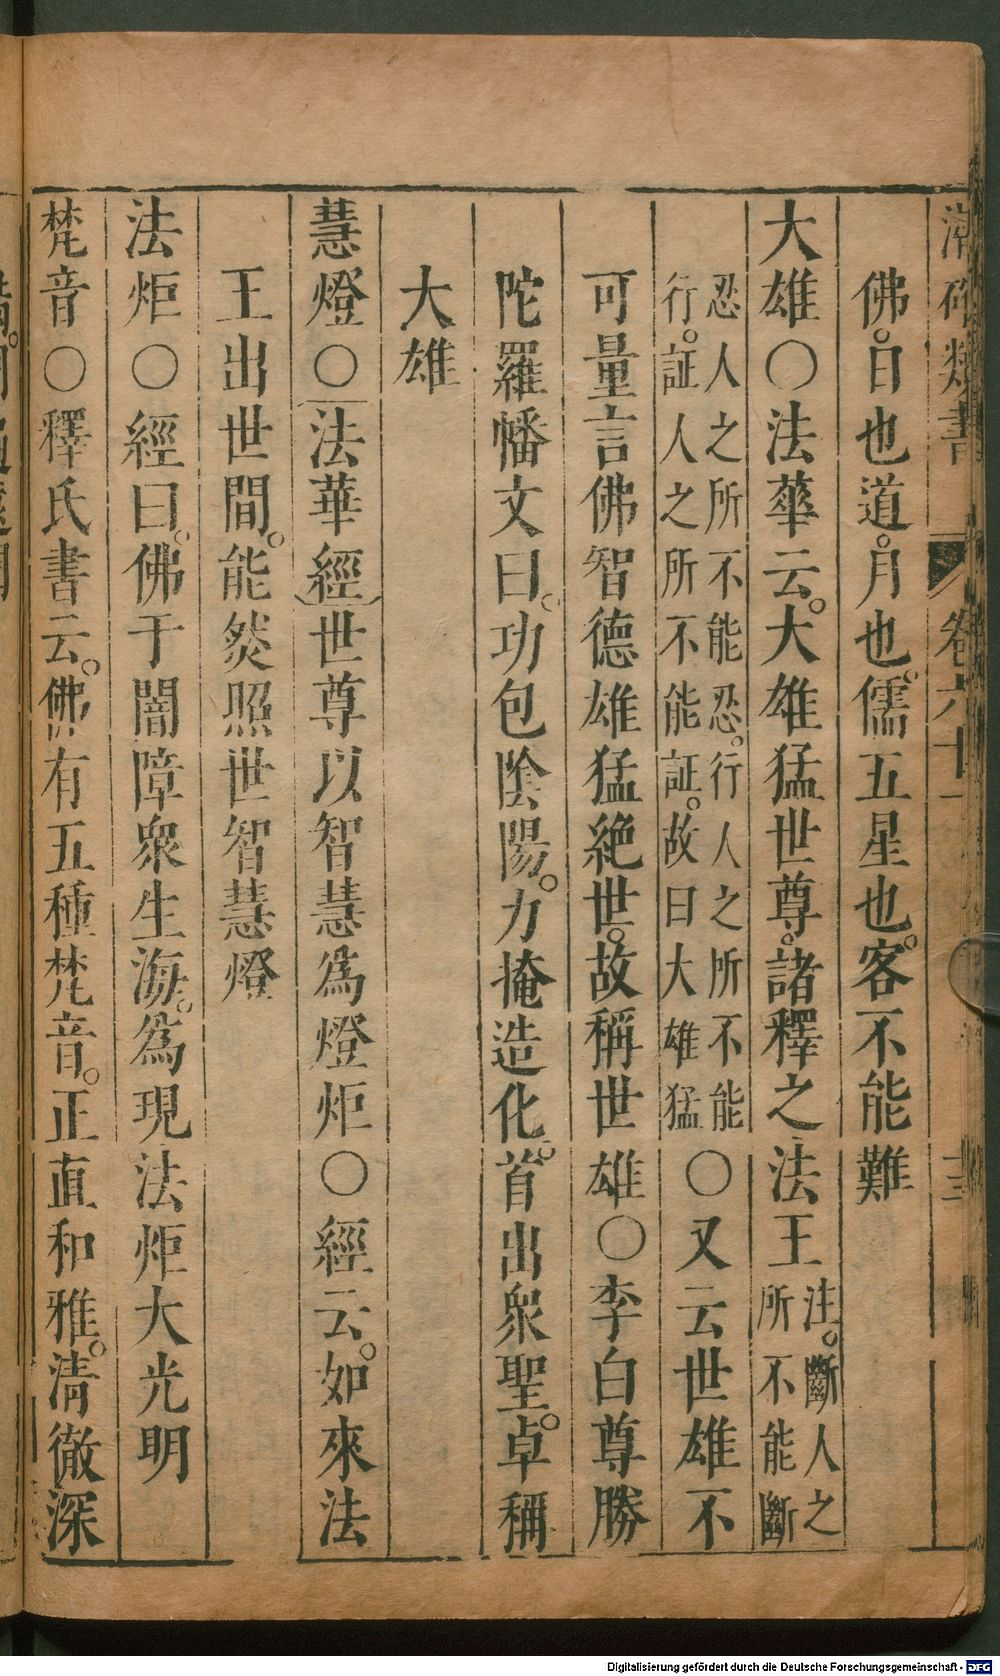 潛確類書 卷六十 十三
佛。日也道。月也。儒五星也。客不能難
大雄〇法華云。大雄猛世尊。諸釋之法王注。斷人之所不能斷
忍人之所不能忍。行人之所不能行。証人之所不能証。故曰大雄猛〇又云世雄不
可量言佛智德雄猛絶世。故稱世雄〇李白尊勝
陀羅幡文曰。功包陰陽。力掩造化。首出衆聖。卓稱
大雄
慧燈〇法華經世尊以智慧爲燈炬〇經云。如來法
王出世間。能然照世智慧燈
法炬〇經曰。佛于闇障衆生海。爲現法炬大光明
梵音〇釋氏書云。佛有五種梵音。正直和雅。清徹深
Digitalisierung gefördert durch die Deutsche Forschungsgemeinschaft - DFG